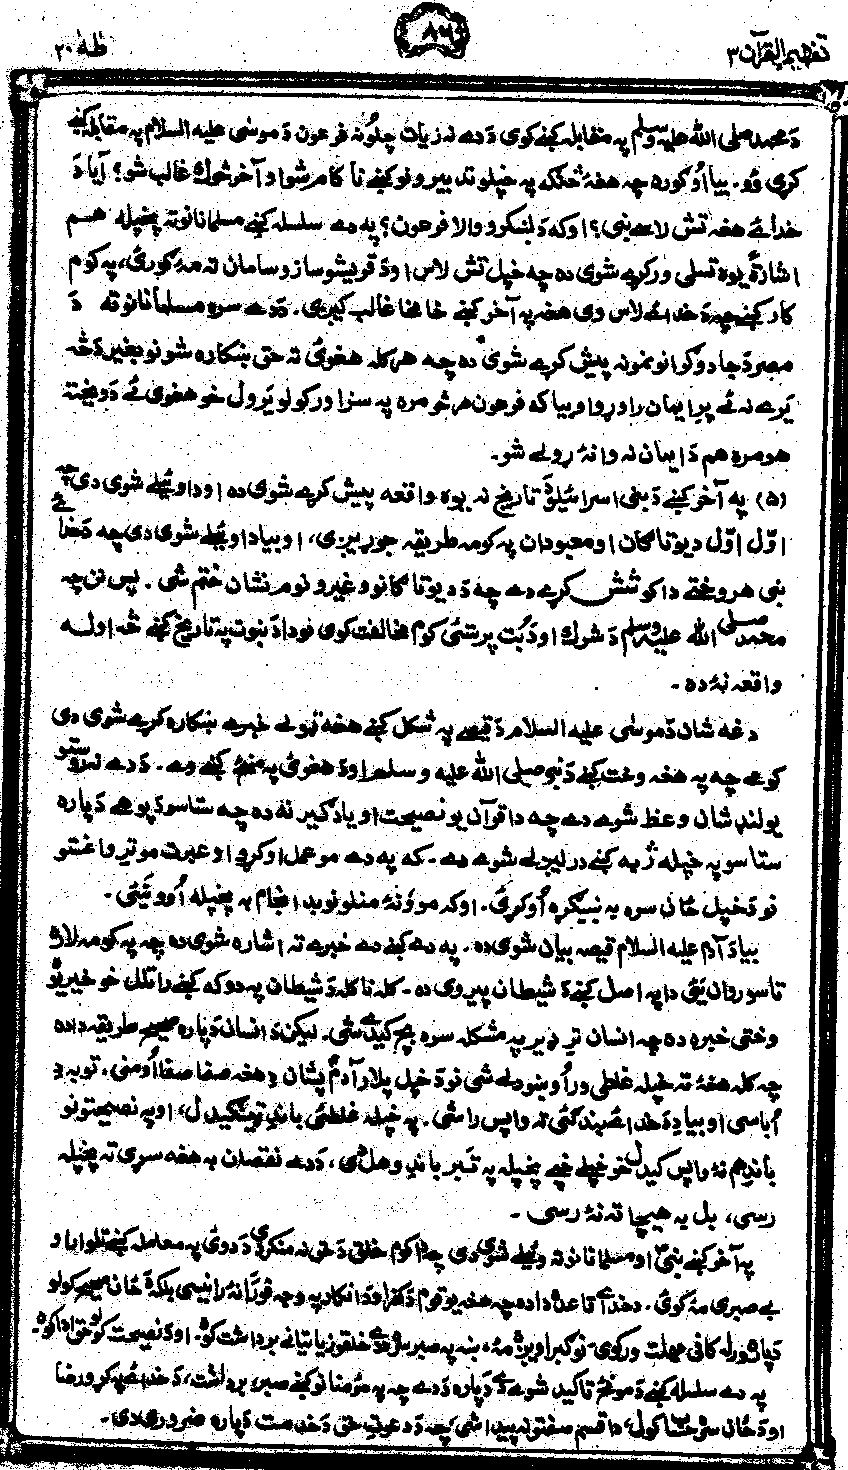 تفهیم القرآن ۳
۸۶
طٰهٰ ۲۰
دَ محمد صلی الله علیه وسلم په مقابله کښے کوی دَ دے نه زیات چلُونه فرعون دَ موسٰی علیه السلام په مقابله کښے
کړی وُو. بیا اُوګوره چه هغهٔ څنګه په خپلو تدبیرونو کښے ناکامه شو او آخر څوک غالب شو؟ آیا دَ
خدائے هغه تش لاسے نبی؟ او که دَ لښکرو والا فرعون؟ په دے سلسله کښے مسلمانانو ته پخپله هسم
اشارةً یوه تسلی ورکړے شوی ده چه خپل تش لاس او دَ قریشو سازوسامان ته مهٔ ګورئ، په کوم
کار کښے چه دَ خدائے لاس وی هغه په آخر کښے خامخا غالب کیږی. دَ دے سره مسلمانانو ته دَ
مصر دَ جادوګرانو نمونه پیش کړے شوی ده چه هرکله هغوئ ته حق ښکاره شو نو بغیر دَ څهٔ
یَرے نه ئے پرِ ایمان راوړو او بیا که فرعون هر څومره په سزا ورکولو یَرول خو هغوی ئے دَ ویښته
هومره هم دَ ایمان نه وانهٔ ړولے شو.
(۵) په آخر کښے دَ بنی اسرائیلو دَ تاریخ نه یوه واقعه پیش کړے شوی ده او دا وئیلے شوی دی چه
اوّل اوّل دیوتاګان او معبودان په کومه طریقه جوړیږی، او بیا دا وئیلے شوی دی چه دَ خدائے
نبی هر وختے دا کوشش کړے دے چه دَ دیوتاګانو وغیره نوم نشان ختم شی. پس نن چه
محمد صلی الله علیه وسلم دَ شرک او دَ بُت پرستئ کوم مخالفت کوی نو دا دَ نبوت په تاریخ کښے څهٔ اوله
واقعه نهٔ ده.
دغه شان دَ موسٰی علیه السلام دَ قصے په شکل کښے هغه ټولے خبرے ښکاره کړے شوی دی
کومے چه په هغه وخت کښے دَ نبی صلی الله علیه وسلم او دَ هغوئ په منځ کښے وے. دَ دے نه روستو
یو لنډ شان وعظ شوے دے چه دا قرآن یو نصیحت او یادګیرنه ده چه ستاسو دَ پوهے دَ پاره
ستاسو په خپله ژبه کښے درلیږلے شوے دے. که په دے مو عمل اوکړو او عبرت مو ترِ واغستو
نو دَ خپل ځان سره به نیګړه اُوکړئ. او که مو وُنهٔ منلو نو بد انجام به پخپله اُووینئ.
بیا دَ آدم علیه السلام قیصه بیان شوی ده. په دے کښے دے خبرے ته اشاره شوی ده چه په کومه لاره
تاسو روان یئ دا په اصل کښے دَ شیطان پیروی ده. کله ناکله دَ شیطان په دوکه کښے راتلل خو خیر یو
وختی خبره ده چه انسان ترِ ډیر په مشکله سره بچ کیدے شی. لیکن دَ انسان دَپاره صحیح طریقه دا ده
چه کله هغهٔ ته خپله غلطی ورُاوښودلے شی نو دَ خپل پلار آدمؑ پشان دِ هغه صفا صفا اُومنی. توبه دِ
اُباسی او بیا دِ دَ خدائے بندګئ ته واپس راشی. په خپله غلطئ باندے ټینګیدل، او په نصیحتونو
باندے هم نهٔ واپس کیدل خو خپلے ښپے پخپله په تبر باندِ وهل دی، دَ دے نقصان به هغه سړی ته پخپله
رسی، بل به هیچا ته نهٔ رسی.
په آخر کښے نبیؐ او مسلمانانو ته وئیلے شوی دی چه دا کوم خلق دَ حق نه منکر دی دَ دوئ په معامله کښے تلوار او
بے صبری مهٔ کوئ. دَ خدائے قاعده دا ده چه هغه یو قوم دَ کفر او دَ انکار په وجه فوراً نهٔ رانیسی بلکه دَ ځان سمبولو
دَپاره ورله کافی مهلت ورکوی. نو ګبراویږئ مهٔ، ښه په صبر سره دَ دے خلقو زیاتیانے برداشت کړئ. او دَ نصیحت کولو حق ادا کړئ.
په دے سلسله کښے دَ مونځ تاکید شوے دے دَپاره دَ دے چه په مؤمنانو کښے صبر، برداشت، دَ خدائے په کړو رضا
او دَ ځان سره حساب کولو دا قسم صفتونه پیدا شی کوم چه دَ دعوتِ حق دَ خدمت دَپاره ضروری دی.